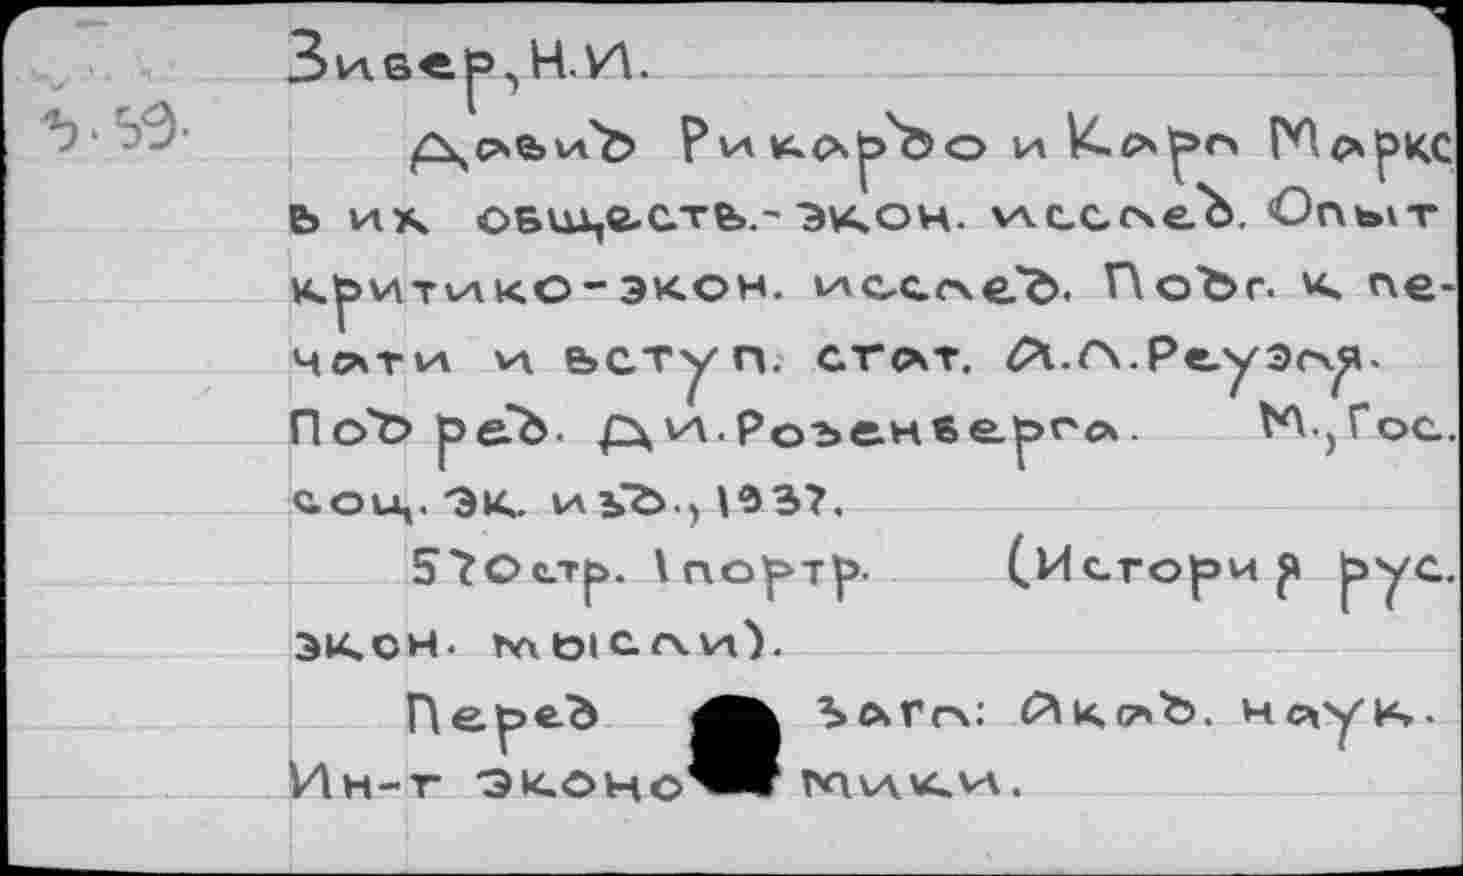 Зибер, Н.И.
З.59.
Давид Рикардо и Карл Маркс
в их обществ.-экон. исслед. Опыт
критико-экон. исслед. Подг. к пе-
чати и вступ. стат. А.Л.Реуэля.
Под ред. Д.И.Розенберга. М., Гос.
соц. эк. изд., 1937.
570стр. 1портр. (История рус.
экон. мысли).
Перед загл: Акад. наук.
Ин-т экономики.